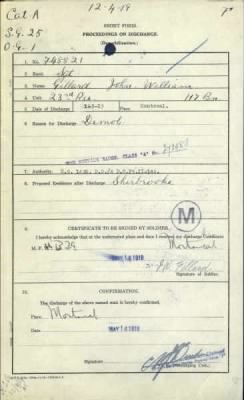 12-4-19
Cat. A
S.G. 25
O.G. 1
SHORT FORM.
PROCEEDINGS ON DISCHARGE.
(Demobilization)
1. No. 748821
2. Rank Sgt
3. Name Gillard John William
4. Unit 23rd Res 117 Bn
5. Date of Discharge Place Montreal
6. Reason for Discharge Demob
WAR SERVICE BADGE, CLASS "A" No.
7. Authority
8. Proposed Residence after Discharge Sherbrooke
M
9. CERTIFICATE TO BE SIGNED BY SOLDIER.
I hereby acknowledge that at the undermentioned place and date I received my discharge Certificate
Montreal
J W Gillard
Signature of Soldier.
10. CONFIRMATION.
The discharge of the above named man is hereby confirmed.
Place Montreal
Date MAY 14 1919